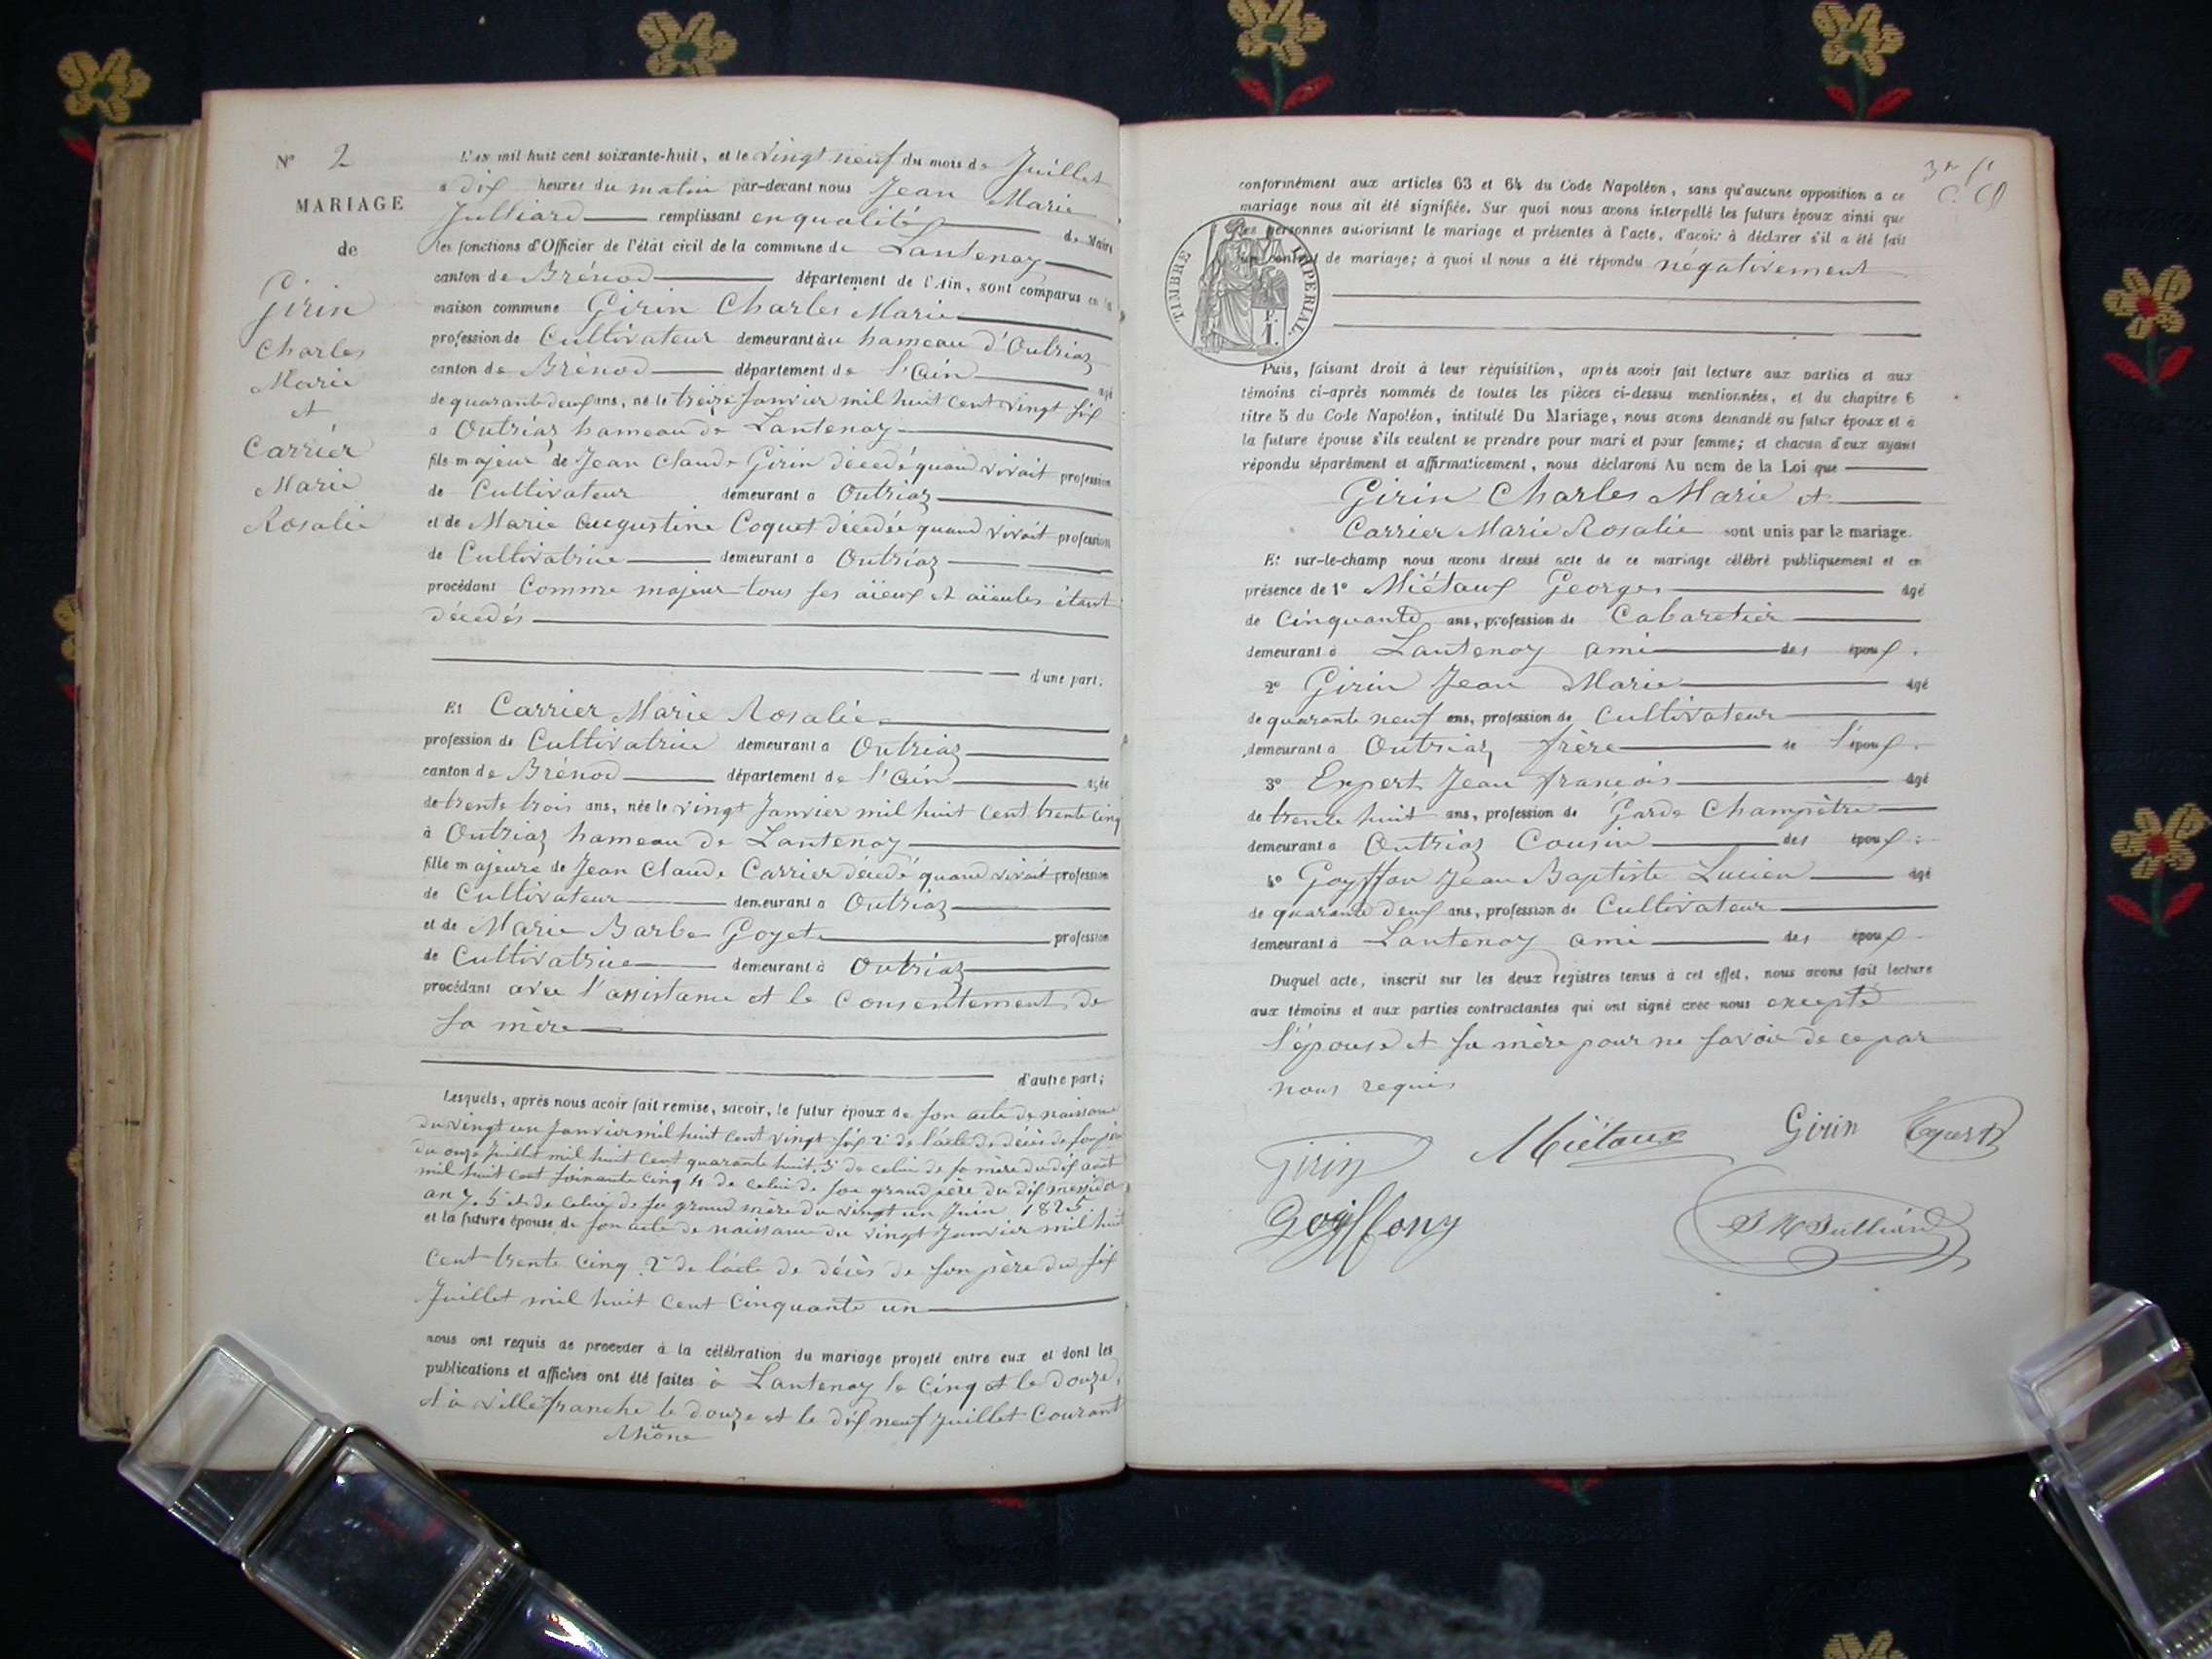 N° 2
MARIAGE
de
Girin
Charles
Marie
et
Carrier
Marie
Rosalie
L'an mil huit cent soixante-huit, et le vingt neuf du mois de Juillet
à dix heures du matin par-devant nous Jean Marie
Julliard remplissant en qualité de Maire
les fonctions d'Officier de l'état civil de la commune de Lantenay
canton de Brénod département de l'Ain, sont comparus en la
maison commune Girin Charles Marie
profession de Cultivateur demeurant au hameau d'Outriaz
canton de Brénod département de l'Ain agé
de quarante deux ans, né le treize Janvier mil huit cent vingt six
à Outriaz hameau de Lantenay
fils majeur de Jean Claude Girin décedé quand vivait profession
de Cultivateur demeurant à Outriaz
et de Marie Augustine Coquet décedée quand vivait profession
de Cultivatrice demeurant à Outriaz
procédant Comme majeur tous ses aïeux et aïeules étant
décedés
d'une part.
Et Carrier Marie Rosalie
profession de Cultivatrice demeurant à Outriaz
canton de Brénod département de l'Ain agée
de trente trois ans, née le vingt Janvier mil huit cent trente cinq
à Outriaz hameau de Lantenay
fille majeure de Jean Claude Carrier décedé quand vivait profession
de Cultivateur demeurant à Outriaz
et de Marie Barbe Goyet profession
de Cultivatrice demeurant à Outriaz
procédant avec l'assistance et le Consentement de
sa mère
d'autre part;
Lesquels, après nous avoir fait remise, savoir, le futur époux de son acte de naissance
du vingt un Janvier mil huit cent vingt six 2° de l'acte de décès de son père
du onze Juillet mil huit cent quarante huit. 3° de celui de sa mère du dix août
mil huit cent soixante cinq 4 de celui de son grand père du dix messidor
an 7. 5° et de celui de sa grand mère du vingt un Juin 1825.
et la future épouse de son acte de naissance du vingt Janvier mil huit
Cent trente cinq 2° de l'acte de décès de son père du six
Juillet mil huit cent Cinquante un
nous ont requis de proceder à la célébration du mariage projeté entre eux et dont les
publications et affiches ont été faites à Lantenay le Cinq et le douze,
et à villefranche le douze et le dix neuf Juillet Courant
Rhône
conformément aux articles 63 et 64 du Code Napoléon, sans qu'aucune opposition a ce
mariage nous ait été signifiée. Sur quoi nous avons interpellé les futurs époux ainsi que
les personnes autorisant le mariage et présentes à l'acte, d'avoir à déclarer s'il a été fait
un contrat de mariage; à quoi il nous a été répondu négativement
TIMBRE IMPERIAL.
F. 1.
Puis, faisant droit à leur réquisition, après avoir fait lecture aux parties et aux
témoins ci-après nommés de toutes les pièces ci-dessus mentionnées, et du chapitre 6
titre 5 du Code Napoléon, intitulé Du Mariage, nous avons demandé au futur époux et à
la future épouse s'ils veulent se prendre pour mari et pour femme; et chacun d'eux ayant
répondu séparément et affirmativement, nous déclarons Au nom de la Loi que
Girin Charles Marie et
Carrier Marie Rosalie sont unis par le mariage.
Et sur-le-champ nous avons dressé acte de ce mariage célébré publiquement et en
présence de 1° Miétaux Georges agé
de Cinquante ans, profession de Cabaretier
demeurant à Lantenay ami des époux.
2° Girin Jean Marie agé
de quarante neuf ans, profession de Cultivateur
demeurant à Outriaz frère de l'époux.
3° Expert Jean François agé
de trente huit ans, profession de Garde Champêtre
demeurant à Outriaz Cousin des époux.
4° Goyffon Jean Baptiste Lucien agé
de quarante deux ans, profession de Cultivateur
demeurant à Lantenay ami des époux
Duquel acte, inscrit sur les deux registres tenus à cet effet, nous avons fait lecture
aux témoins et aux parties contractantes qui ont signé avec nous excepté
l'épouse et sa mère pour ne savoir de ce par
nous requis
Girin Miétaux Girin Expert
Goiffony J M Julliard